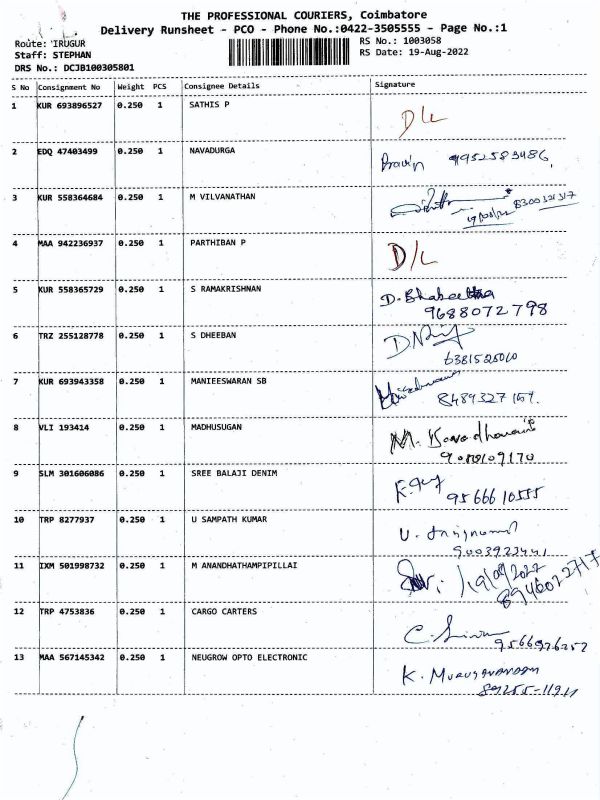 THE PROFESSIONAL COURIERS, Coimbatore
Delivery Runsheet - PCO - Phone No.:0422-3505555 - Page No.:1
Route: IRUGUR RS No.: 1003058
Staff: STEPHAN RS Date: 19-Aug-2022
DRS No.: DCJB100305801
S No Consignment No Weight PCS Consignee Details Signature
1 KUR 693896527 0.250 1 SATHIS P D/L
2 EDQ 47403499 0.250 1 NAVADURGA Pravin 9952583486
3 KUR 558364684 0.250 1 M VILVANATHAN 8300321317
4 MAA 942236937 0.250 1 PARTHIBAN P D/L
5 KUR 558365729 0.250 1 S RAMAKRISHNAN D.
9688072798
6 TRZ 255128778 0.250 1 S DHEEBAN
6381525060
7 KUR 693943358 0.250 1 MANIEESWARAN SB
8489327167.
8 VLI 193414 0.250 1 MADHUSUGAN M.
9 SLM 301606086 0.250 1 SREE BALAJI DENIM
9566610555
10 TRP 8277937 0.250 1 U SAMPATH KUMAR U.
9003923441
11 IXM 501998732 0.250 1 M ANANDHATHAMPIPILLAI 19/08/2022
12 TRP 4753836 0.250 1 CARGO CARTERS C.
9566926252
13 MAA 567145342 0.250 1 NEUGROW OPTO ELECTRONIC K. MURUGANANDAM